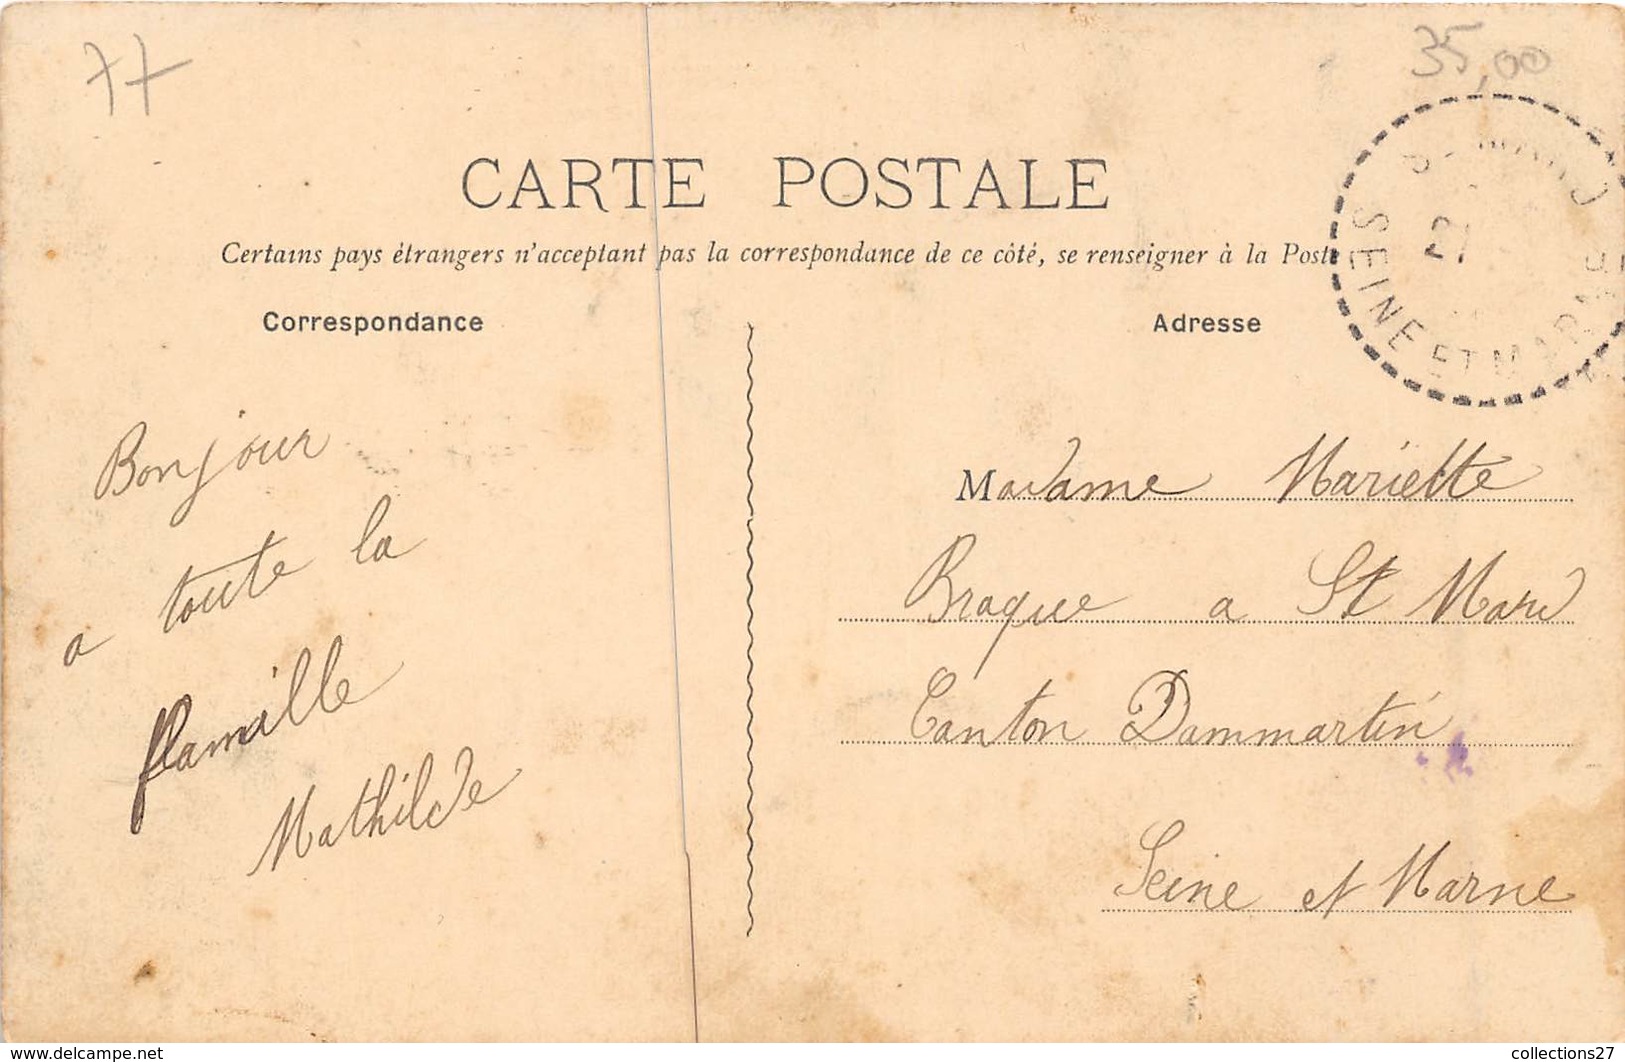 77
35,00
CARTE POSTALE
Certains pays étrangers n'acceptant pas la correspondance de ce côté, se renseigner à la Poste
Correspondance
Adresse
SEINE ET MARNE
Bonjour
a toute la
famille
Mathilde
Madame Mariette
Braque a St Mard
Canton Dammartin
Seine et Marne
www.delcampe.net
collections27